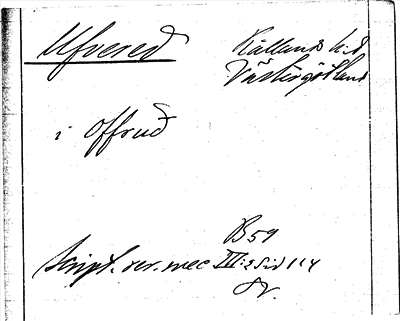 Ulfvered
Kållands hd
Västergötland
i Offrud
B 59
Script. rer. svec III:2 Sid 114